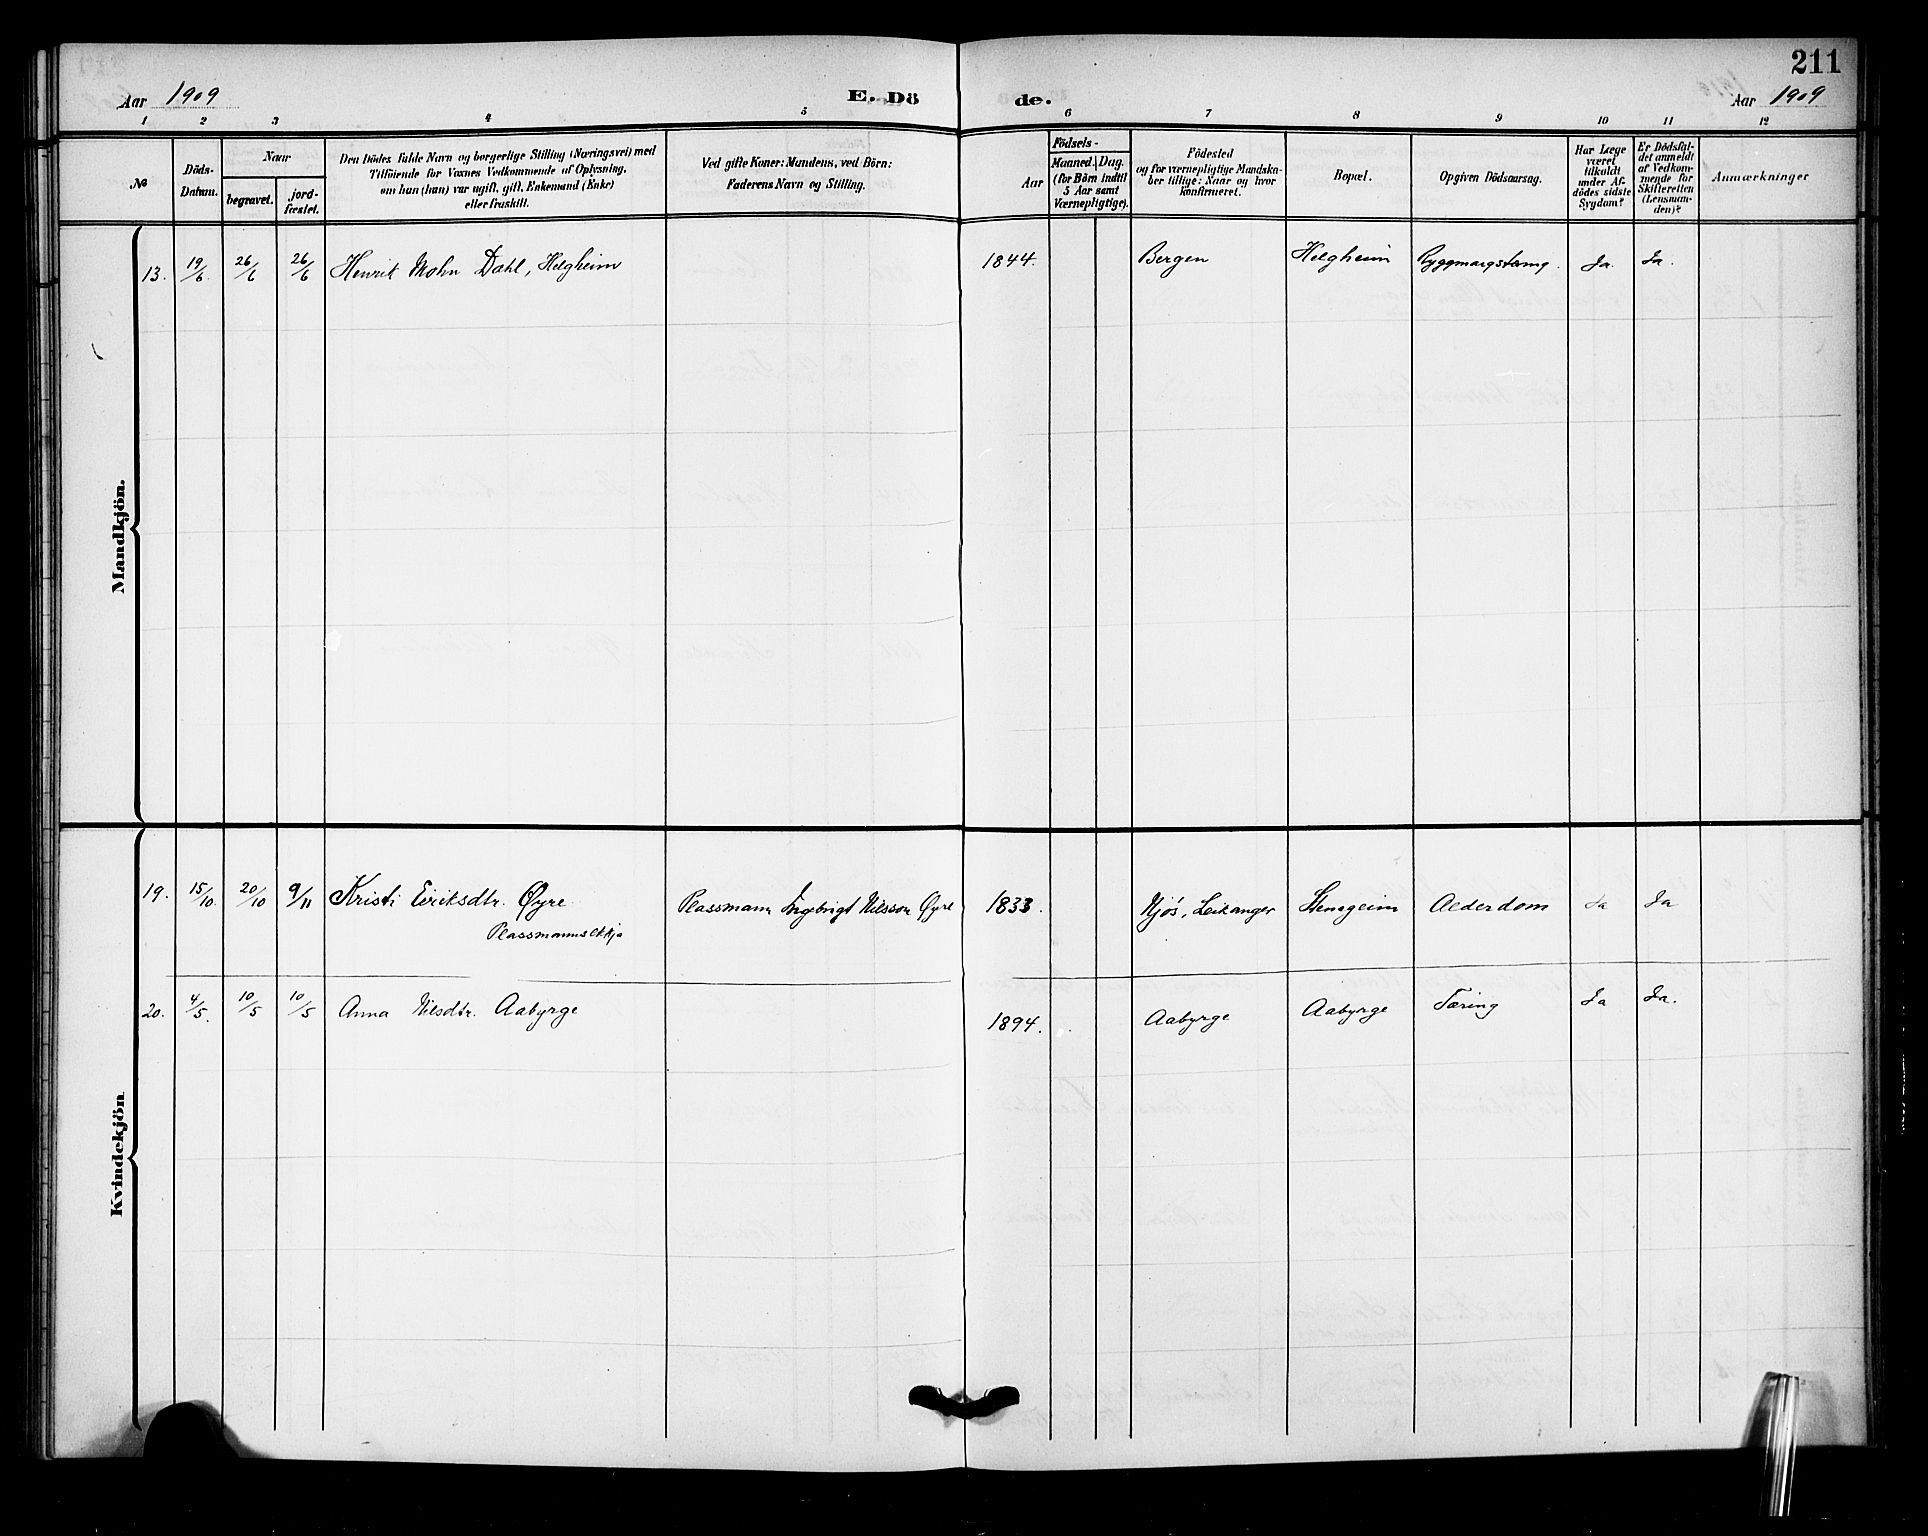 211
Aar 1909
E. Dö
de.
Aar 1909
1 2 3 4 5 6 7 8 9 10 11 12
No
Döds-
Datum.
Naar
begravet.
jord-
fæstet.
Den Dödes fulde Navn og borgerlige Stilling (Næringsvei) med
Tilföiende for Voxnes Vedkommende af Oplysning,
om han (hun) var ugift, gift, Enkemand (Enke)
eller fraskilt.
Ved gifte Koner: Mandens, ved Börn:
Faderens Navn og Stilling.
Födsels-
Aar
Maaned. Dag.
(for Börn indtil
5 Aar samt
Værnepligtige).
Födested
og for værnepligtige Mandska-
ber tillige: Naar og hvor
konfirmeret.
Bopæl.
Opgiven Dödsaarsag.
Har Læge
været
tilkaldt
under Af-
dödes sidste
Sygdom?
Er Dödsfal-
det anmeldt
af Vedkom-
mende for
Skifteretten
(Lensman-
den)?
Anmærkninger
Mandkjön.
13. 19/6. 26/6 26/6 Henrik Mohn Dahl, Helgheim 1844. Bergen Helgheim Ryggmargstæring. Ja. Ja.
Kvindekjön
19. 15/10. 20/10 9/11 Kristi Eiriksdtr. Øyre Plassmann Ingebrigt Nilsson Øyre 1833. Njøs, Leikanger Stensgeim Alderdom Ja Ja
Plassmannsekkja
20. 4/5. 10/5 10/5 Anna Nilsdtr. Aabyrge 1894. Aabyrge Aabyrge Tæring Ja Ja.